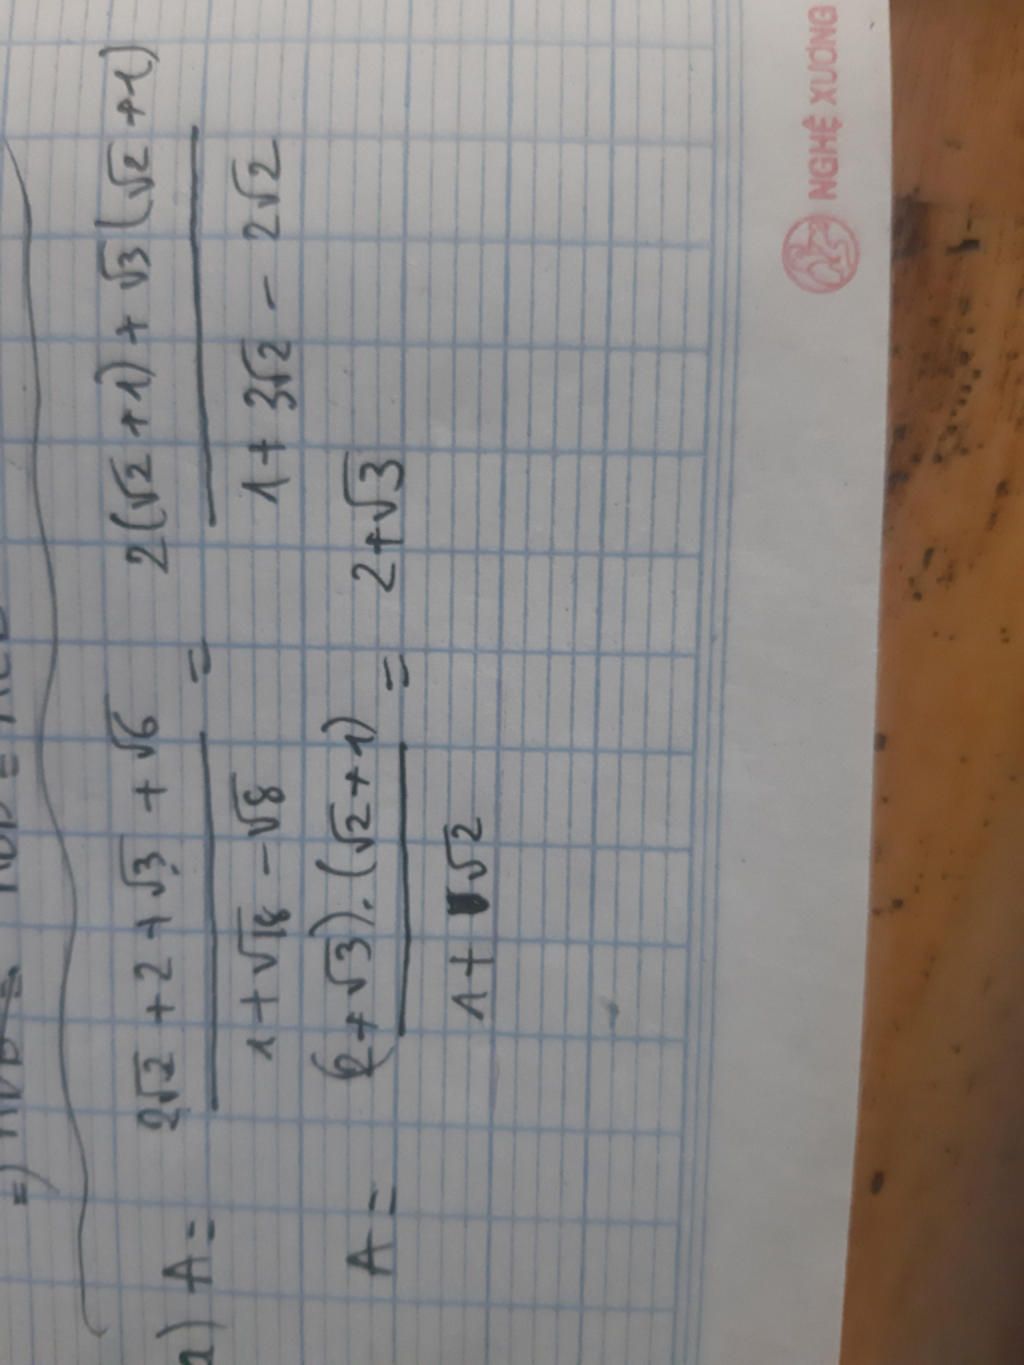 a) A = (2√2 + 2 + √3 + √6) / (1 + √18 - √8) = (2(√2 + 1) + √3(√2 + 1)) / (1 + 3√2 - 2√2)
A = ((2 + √3).(√2 + 1)) / (1 + √2) = 2 + √3
NGHỆ XƯƠNG